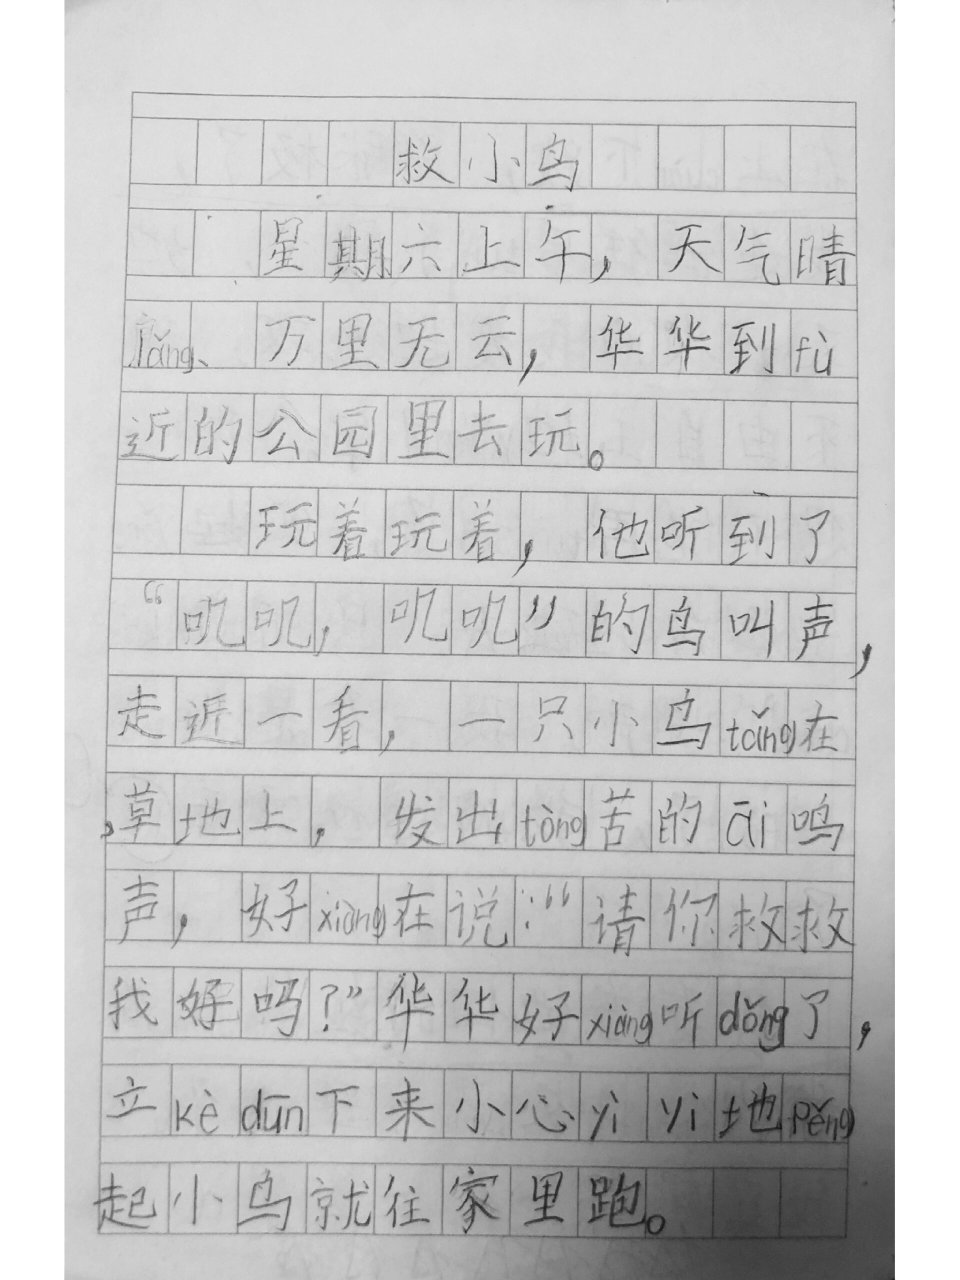 救小鸟
星期六上午，天气晴
lǎng、万里无云，华华到fù
近的公园里去玩。
玩着玩着，他听到了
“叽叽，叽叽”的鸟叫声，
走近一看，一只小鸟tǎng在
草地上，发出tòng苦的āi鸣
声，好xiàng在说：“请你救救
我好吗？”华华好xiàng听dǒng了，
立kè dūn下来小心yì yì地pěng
起小鸟就往家里跑。